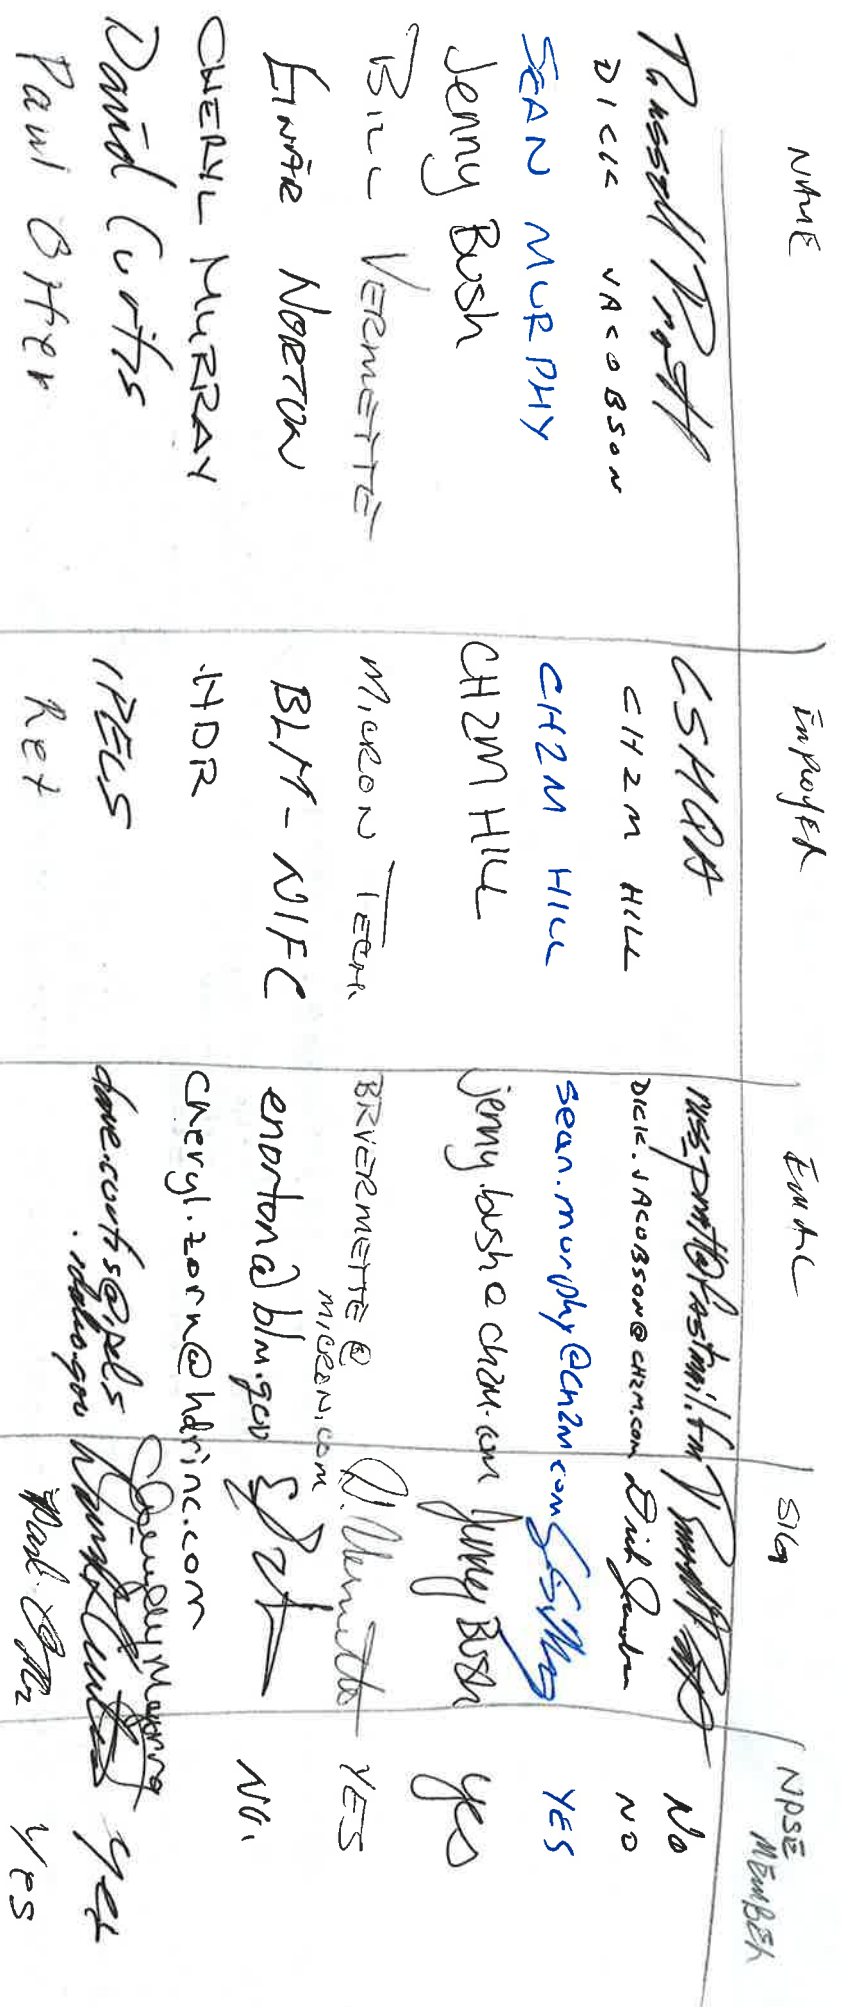 NAME EMPLOYER EMAIL SIG NPSE MEMBER
Russell Pratt CSHQA russ_pratt@fastmail.fm Russell Pratt No
DICK JACOBSON CH2M HILL DICK.JACOBSON@CH2M.com Dick Jacobson NO
SEAN MURPHY CH2M HILL sean.murphy@ch2m.com YES
Jenny Bush CH2M HILL jenny.bush@ch2m.com Jenny Bush yes
BILL VERMETTE MICRON TECH. BRVERMETTE@MICRON.COM YES
EINAR NORTON BLM-NIFC enorton@blm.gov NO.
CHERYL MURRAY HDR cheryl.zorn@hdrinc.com Cheryl Murray
David Curtis IPELS dave.curtis@ipels.idaho.gov David Curtis yes
Paul Otter Ret Paul Otter Yes